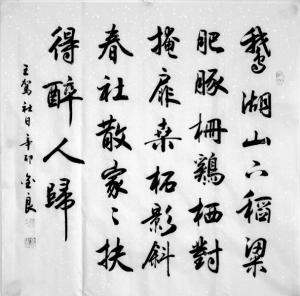 鵝湖山下稻粱
肥豚柵鷄栖對
掩扉桑柘影斜
春社散家〻扶
得醉人歸
王駕社日辛卯金良